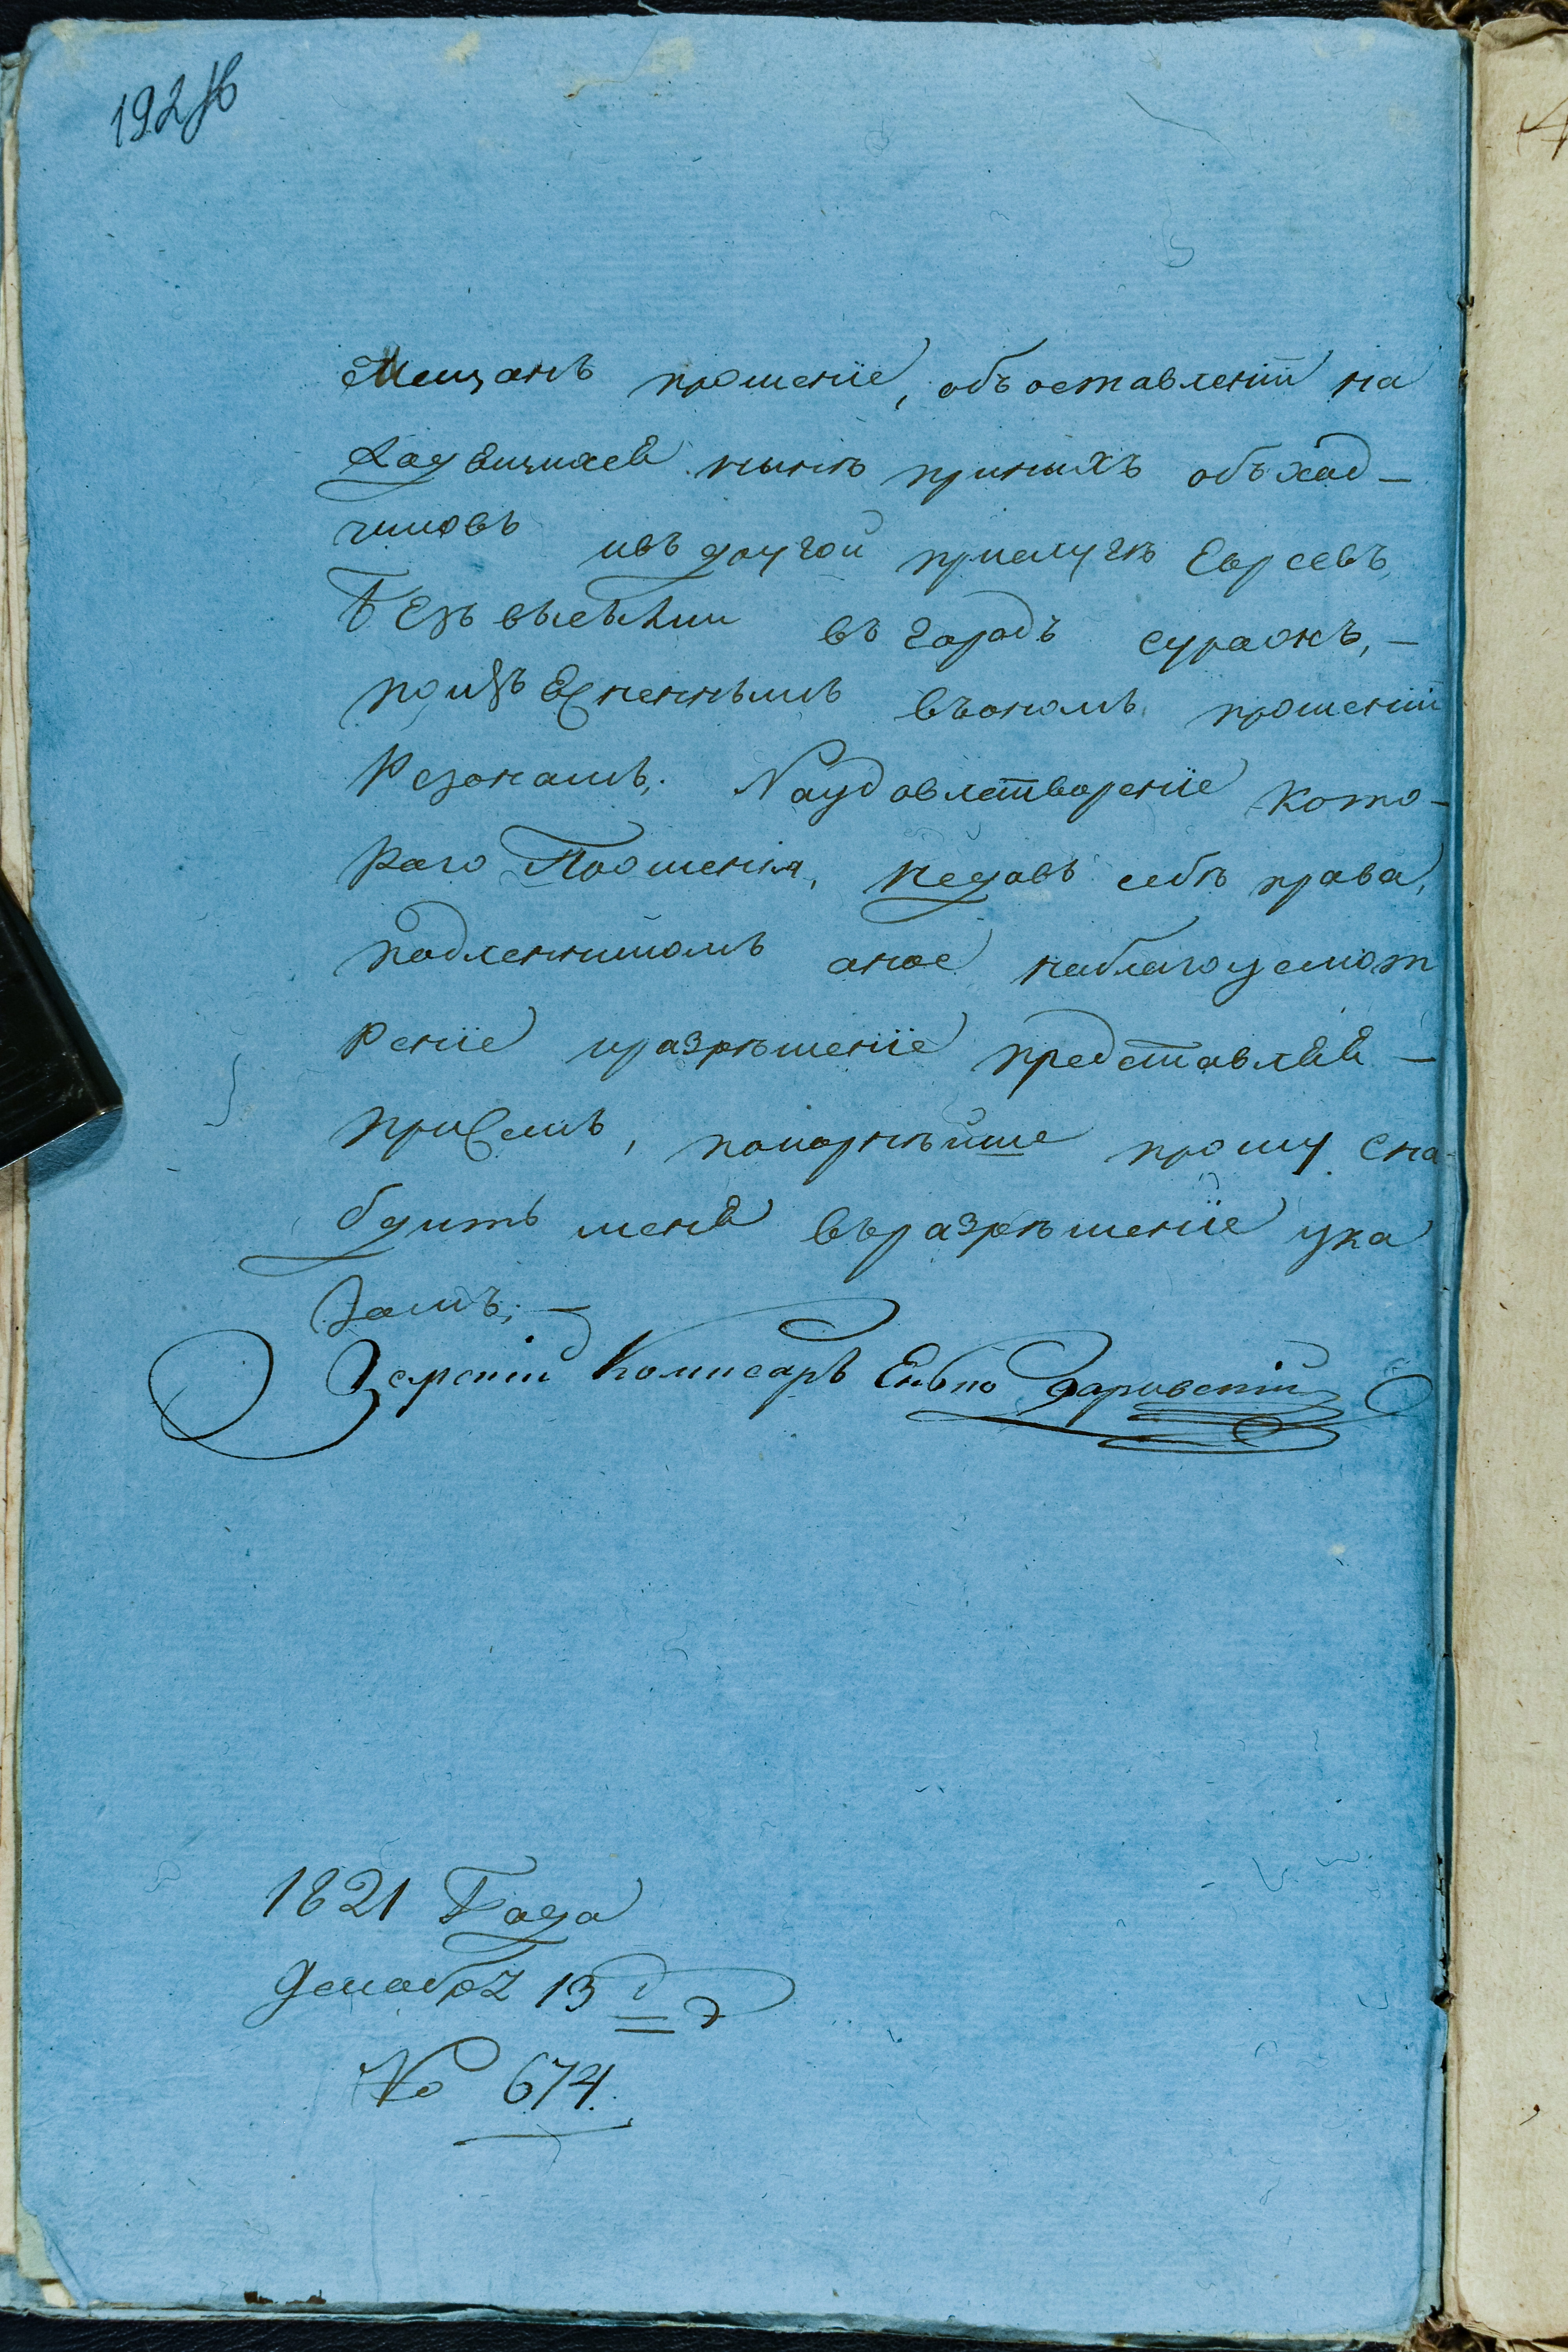 192
Мещанъ прошеніе, объоставленіи на
нынѣ принихъ объезд-
чиковъ идругой прислугѣ Евреевъ
Безъ высылки въ городъ суражъ,-
поизъясненнымъ въономъ прошеніи
Резонамъ. Наудовлетвореніе кото-
раго Прошенія, недавъ себѣ права,
подленникомъ оное наблагоусмот
реніе иразрѣшеніе представляя -
присемъ, покорнѣйше прошу сна
бдить меня въразрѣшеніе ука
зомъ, -
Земскій Комисаръ
1821 Года
декабря 13
№ 674.